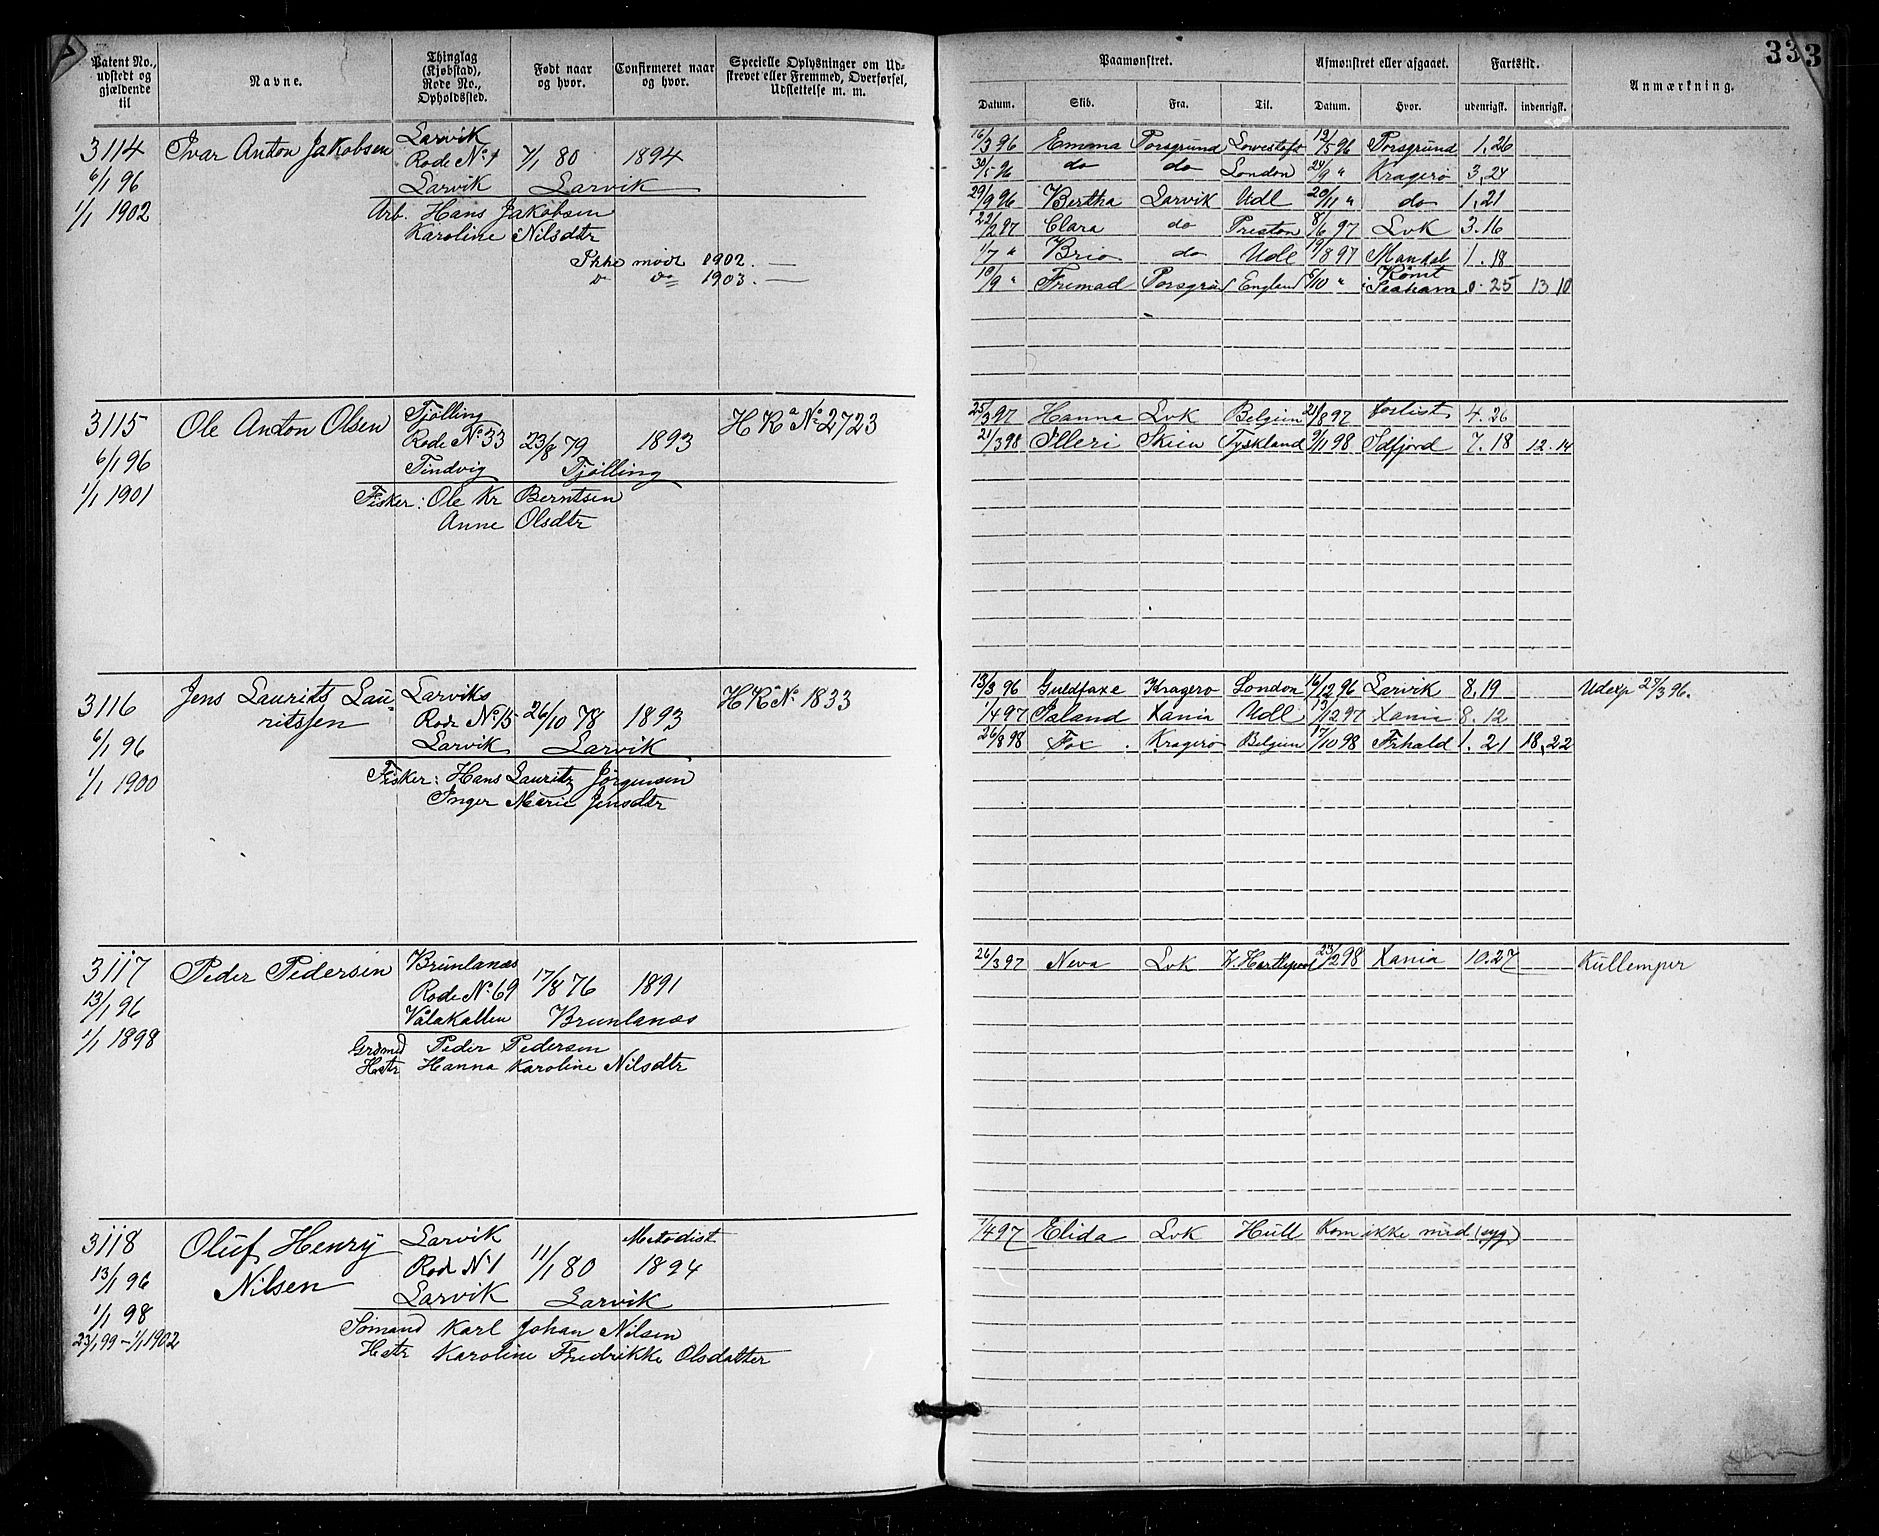 Patent No., udstedt og gjældende til
Navne.
Thinglag (Kjøbstad), Rode No., Opholdssted.
Født naar og hvor.
Confirmeret naar og hvor.
Specielle Oplysninger om Udskrevet eller Fremmed, Overførsel, Udslettelse m. m.
Paamønstret.
Afmønstret eller afgaaet.
Fartstid.
Anmærkning.
333
Datum. Skib. Fra. Til. Datum. Hvor. udenrigsk. indenrigsk.
3114 Ivar Anton Jakobsen Larvik
Rode No. 1 7/1 80 1894
6/1 96 Larvik Larvik
1/1 1902 Arb. Hans Jakobsen
Karoline Nilsdtr
Ikke mødt 1902. —
do 1903. —
16/3 96 Emma Porsgrund Lowestoft 12/5 96 Porsgrund 1.26
30/5 96 do do London 24/9 " Kragerø 3.24
29/9 96 Bertha Larvik Udl 20/11 " do 1.21
22/2 97 Clara do Preston 8/6 97 Lvk 3.16
1/7 " Brio do Udl 19/8 97 Mandal 1.18
10/9 " Fremad Porsgrund England 5/10 " Rømt i Seaham 0.25 13 10
3115 Ole Anton Olsen Tjølling
Rode No. 33 23/8 79 1893 H Ra No. 2723
6/1 96 Tindvig Tjølling
1/1 1901 Fisker: Ole Kr Berntsen
Anne Olsdtr
25/3 97 Hanna Lvk Belgien 21/8 97 forlist 4.26
21/3 98 Illeri Skien Tyskland 9/11 98 Idfjord 7.18 12.14
3116 Jens Laurits Lau-
ritssen Larviks
Rode No. 15 26/10 78 1893 H Ra No. 1833
6/1 96 Larvik Larvik
1/1 1900 Fisker: Hans Lauritz Jørgensen
Inger Marie Jensdtr
13/3 96 Guldfaxe Kragerø London 16/12 96 Larvik 8.19 Udexp 27/3 96.
1/4 97 Island Xania Udl 13/12 97 Xania 8.12
26/8 98 Fox Kragerø Belgien 17/10 98 Frhald 1.21 18,22
3117 Peder Pedersen Brunlanæs
Rode No. 69 17/8 76 1891
13/1 96 Vålakallen Brunlanæs
1/1 1898 Grdmd Peder Pedersen
Hstr Hanna Karoline Nilsdtr
26/3 97 Neva Lvk W. Hartlepool 23/2 98 Xania 10.27 Kullemper
3118 Oluf Henry
Nilsen Larvik Metodist
Rode No 1 11/1 80 1894
13/1 96 Larvik Larvik
1/1 98 Sømand Karl Johan Nilsen
23/1 99 – 1/1 1902 Hstr Karoline Fredrikke Olsdatter
1/4 97 Elida Lvk Hull Kom ikke med (syg)